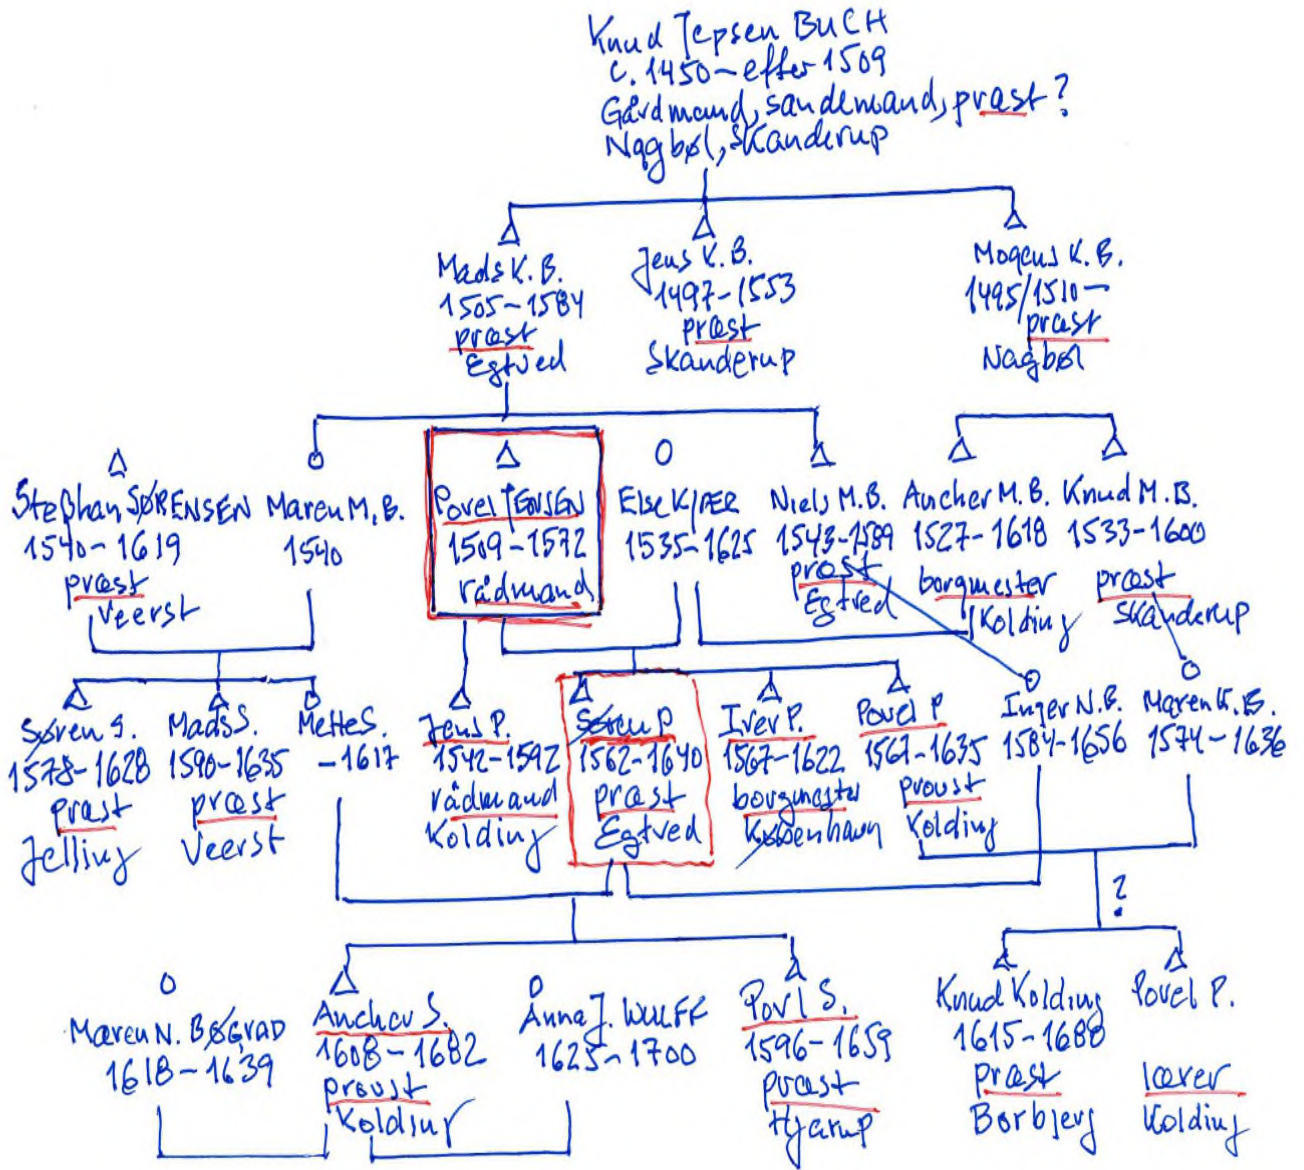 Knud Jepsen BUCH
c. 1450 - efter 1509
Gårdmand, sandemand, præst?
Nagbøl, Skanderup
Mads K. B.
1505 - 1584
præst
Egtved
Jens K. B.
1497 - 1553
præst
Skanderup
Mogens K. B.
1495/1510 -
præst
Nagbøl
Stephan SØRENSEN
1540 - 1619
præst
Veerst
Maren M. B.
1540
Povel JENSEN
1509 - 1572
rådmand
Else K/PER
1535 - 1625
Niels M. B.
1543 - 1589
præst
Egtved
Ancher M. B.
1527 - 1618
borgmester
Kolding
Knud M. B.
1533 - 1600
præst
Skanderup
Søren S.
1578 - 1628
præst
Jelling
Mads S.
1590 - 1635
præst
Veerst
Mette S.
- 1617
Jens P.
1542 - 1592
rådmand
Kolding
Søren P.
1562 - 1640
præst
Egtved
Iver P.
1567 - 1622
borgmester
København
Povel P.
1561 - 1635
provst
Kolding
Inger N. B.
1584 - 1656
Maren K. B.
1574 - 1636
?
Maren N. BØGVAD
1618 - 1639
Ancher S.
1608 - 1682
provst
Kolding
Anna J. WULFF
1625 - 1700
Povl S.
1596 - 1659
præst
Hjarup
Knud Kolding
1615 - 1688
præst
Borbjerg
Povel P.
lærer
Kolding